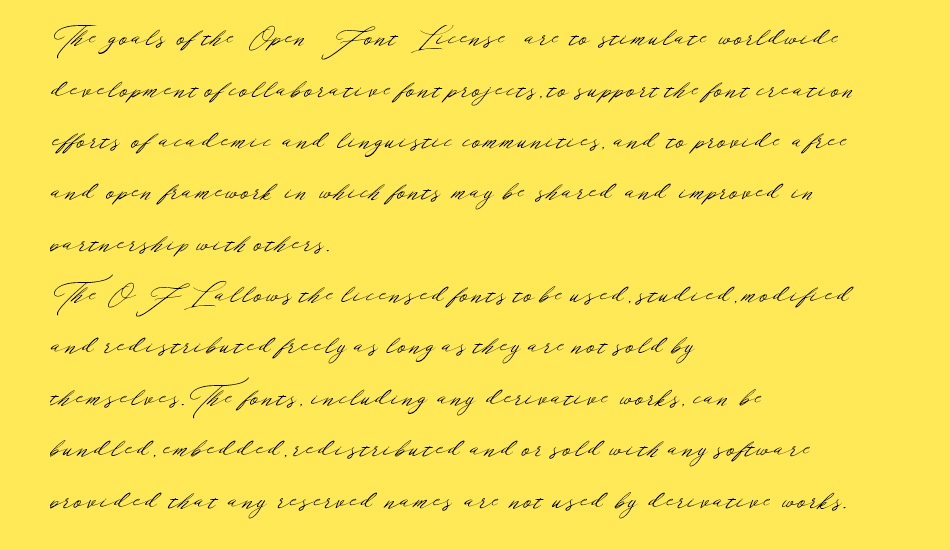 The goals of the Open Font License are to stimulate worldwide
development of collaborative font projects,to support the font creation
efforts of academic and linguistic communities, and to provide a free
and open framework in which fonts may be shared and improved in
partnership with others.
The O F L allows the licensed fonts to be used,studied,modified
and redistributed freely as long as they are not sold by
themselves.The fonts, including any derivative works, can be
bundled,embedded,redistributed and or sold with any software
provided that any reserved names are not used by derivative works.